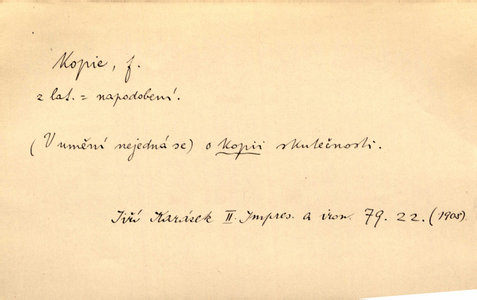 Kopie, f.
z lat. = napodobení.
(V umění nejedná se) o kopii skutečnosti.
Jiří Karásek II. Impres. a iron. 79. 22. (1903)